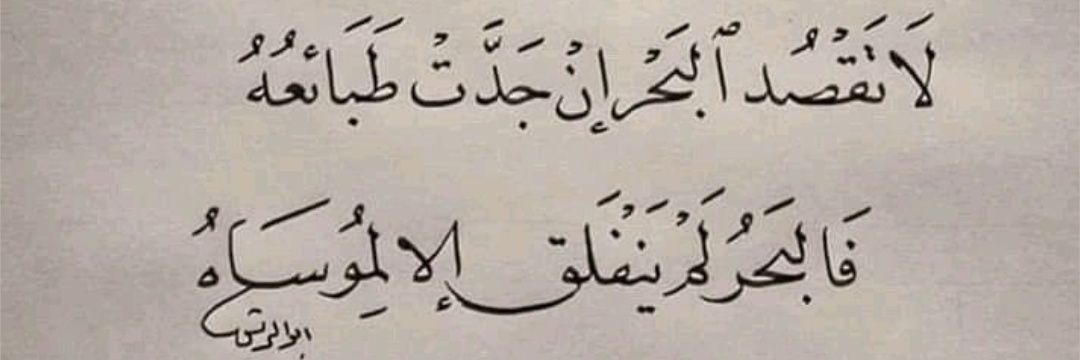 لَا تَقْصُد ٱلبَحْر إِنْ جَدَّتْ طَبَائعُهُ
فَالبَحرُ لَمْ يَنْفَلَق إلا لِمُوسَاهُ